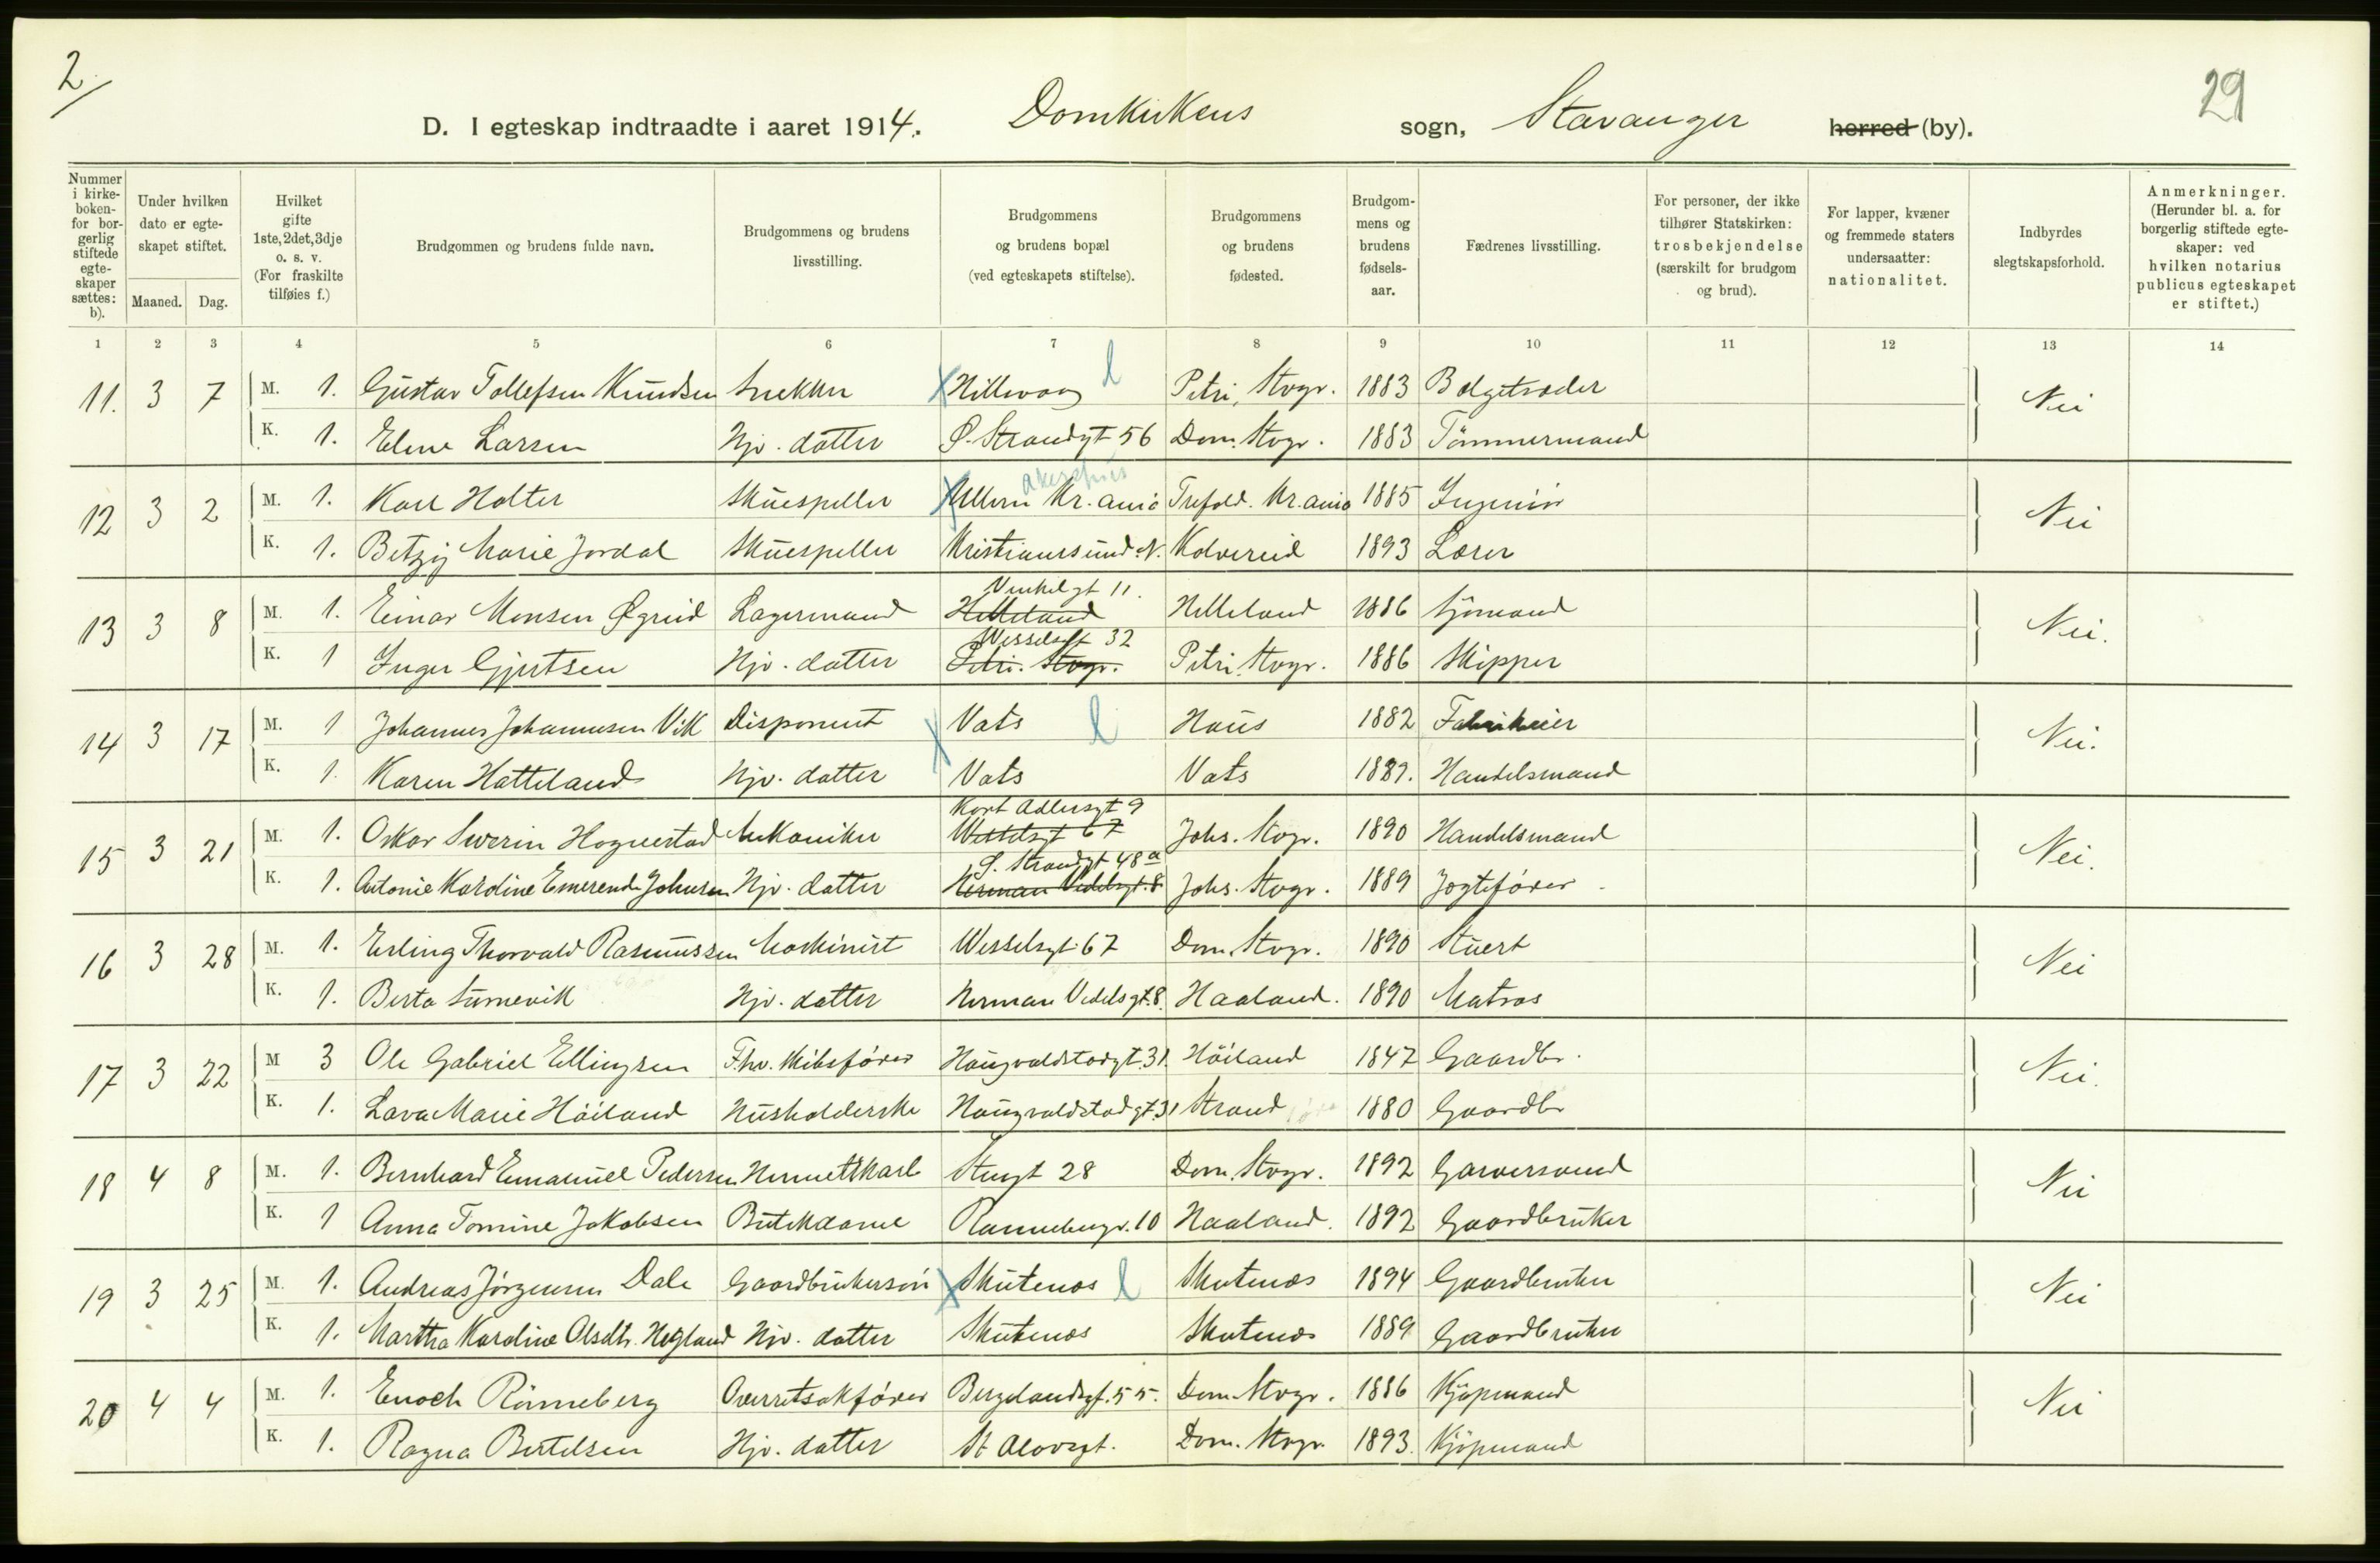 2
29
D. I egteskap indtraadte i aaret 1914. Domkirkens sogn, Stavanger herred (by).
Nummer i kirkeboken- for borgerlig stiftede egteskaper sættes: b).
Under hvilken dato er egteskapet stiftet.
Maaned. Dag.
Hvilket gifte 1ste, 2det, 3dje o. s. v. (For fraskilte tilføies f.)
Brudgommen og brudens fulde navn.
Brudgommens og brudens livsstilling.
Brudgommens og brudens bopæl (ved egteskapets stiftelse).
Brudgommens og brudens fødested.
Brudgommens og brudens fødselsaar.
Fædrenes livsstilling.
For personer, der ikke tilhører Statskirken: trosbekjendelse (særskilt for brudgom og brud).
For lapper, kvæner og fremmede staters undersaatter: nationalitet.
Indbyrdes slegtskapsforhold.
Anmerkninger. (Herunder bl. a. for borgerlig stiftede egteskaper: ved hvilken notarius publicus egteskapet er stiftet.)
1 2 3 4 5 6 7 8 9 10 11 12 13 14
11. 3 7 M. 1. Gustav Tollefsen Knudsen Snekker Hillevaag Petri, Stvgr. 1883 Nei
K. 1. Elene Larsen Hjv. datter Ø. Strandgt 56 Dom. Stvgr. 1883 Tömmermand
akershus
12 3 2 M. 1. Karl Holter Skuespiller Ullern Kr.ania Trefold. Kr.ania 1885 Ingeniör Nei
K. 1. Betzy Marie Jordal Skuespiller Kristianssund.N. Kolvereid 1893 Lærer
Vinkelgt 11.
13 3 8 M. 1. Einar Monsen Øgreid Lagermand Helleland Helleland 1886 Sjömand Nei.
Wesselsgt 32
K. 1 Inger Gjertsen Hjv. datter Petri. Stvgr. Petri Stvgr. 1886 Skipper
14 3 17 M. 1 Johannes Johannesen Vik Disponent Vats Haus 1882 Fabrikeier Nei.
K. 1. Karen Hatteland Hjv. datter Vats Vats 1887. Handelsmand
Kort Adlersgt 9
15 3 21 M. 1. Oskar Severin Hognestad Mekaniker Wesselsgt 67 Johs. Stvgr. 1890 Handelsmand Nei.
Ø. Strandgt 48a
K. 1. Antonie Karoline Esmerende Johnsen Hjv. datter Herman Vedelsgt. 8 Johs. Stvgr. 1889 Jogtefører
16 3 28 M. 1. Erling Thorvald Rasmussen Maskinist Wesselsgt 67 Dom. Stvgr. 1890 Stuert Nei
K. 1. Berta Sunnevik Hjv. datter Herman Vedelsgt. 8. Haaland. 1890 Matros
17 3 22 M 3 Ole Gabriel Ellingsen Fhv. Skibsfører Haugvaldstadgt. 31. Höiland 1847 Gaardbr. Nei.
K. 1. Lava Marie Höiland Husholderske Haugvaldstadgt. 31 Strand 1880 Gaardbr
18 4 8 M. 1. Bernhard Emanuel Pedersen Hermetikarb Stengt 28 Dom. Stvgr. 1892 Garversvend Nei
K. 1 Anna Tomine Jakobsen Butikdame Rannebergr. 10 Haaland. 1892 Gaardbruker
19 3 25 M. 1. Andreas Jörgensen Dale Gaardbrukersön Skutenæs Skutenæs 1894 Gaardbruker Nei
K. 1. Martha Karoline Olsdtr. Høgland Hjv. datter Skutenæs Skutenæs 1889 Gaardbruker
20 4 4 M. 1. Enoch Rönneberg Overretsakfører Bergelandsgt. 55. Dom. Stvgr. 1886 Kjöpmand Nei
K. 1. Ragna Bertelsen Hjv. datter St Olavsgt. Dom. Stvgr. 1893. Kjöpmand